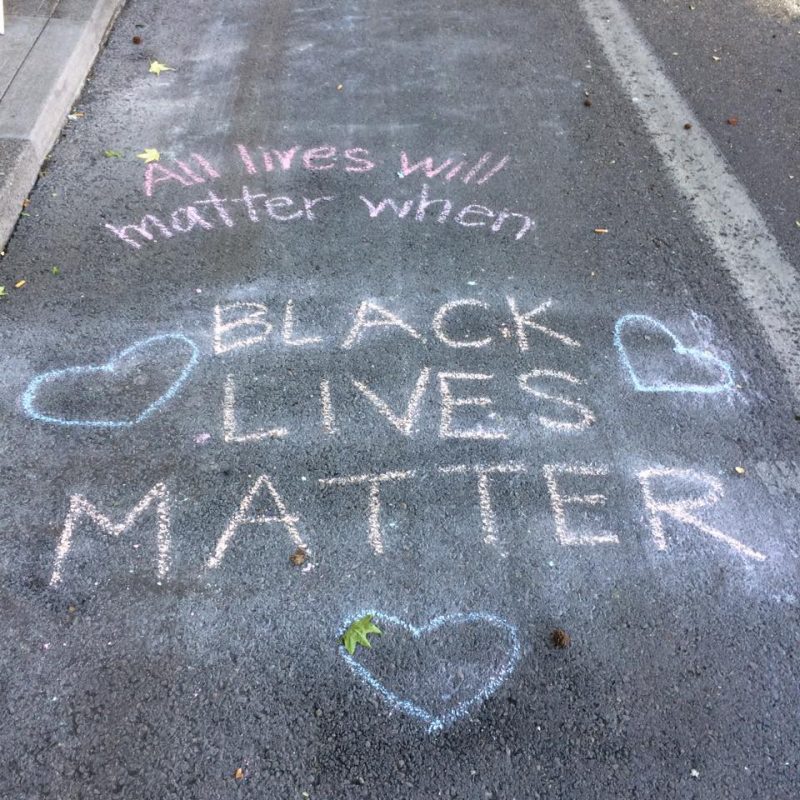 All lives will
matter when
BLACK
LIVES
MATTER